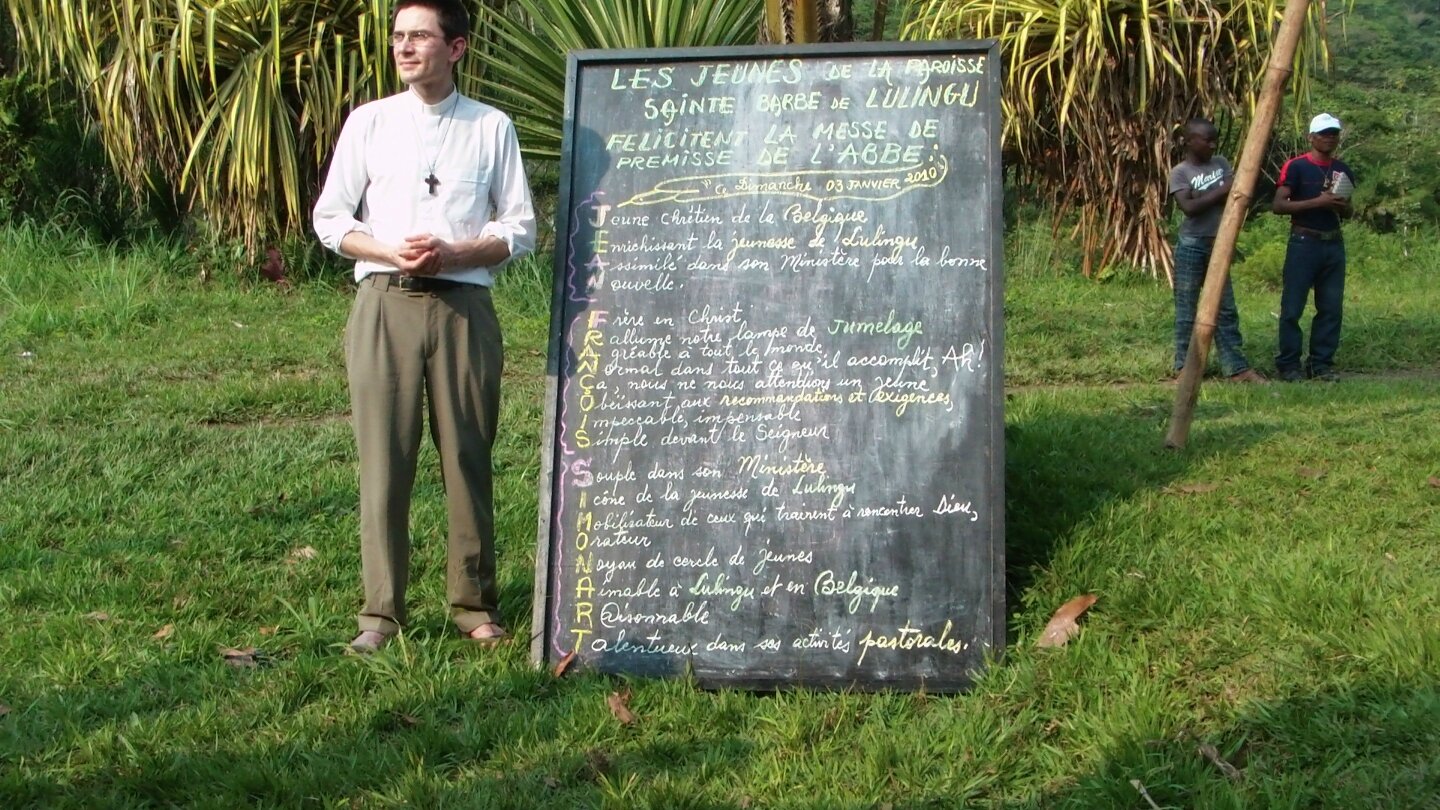 LES JEUNES DE LA PAROISSE
SAINTE BARBE DE LULINGU
FELICITENT LA MESSE DE
PREMISSE DE L'ABBE:
"Ce Dimanche 03 JANVIER 2010"
Jeune chrétien de la Belgique
Enrichissant la jeunesse de Lulingu
Assimilé dans son Ministère pour la bonne
Nouvelle.
Frère en Christ,
Rallume notre lampe de Jumelage
Agréable à tout le monde,
Normal dans tout ce qu'il accomplit, Ah!
Ça, nous ne nous attendions un jeune
Obéissant aux recommandations et exigences,
Impeccable, impensable
Simple devant le Seigneur
Souple dans son Ministère
Icône de la jeunesse de Lulingu
Mobilisateur de ceux qui trainent à rencontrer Dieu,
Orateur
Noyau de cercle de jeunes
Aimable à Lulingu et en Belgique
Raisonnable
Talentueux dans ses activités pastorales.